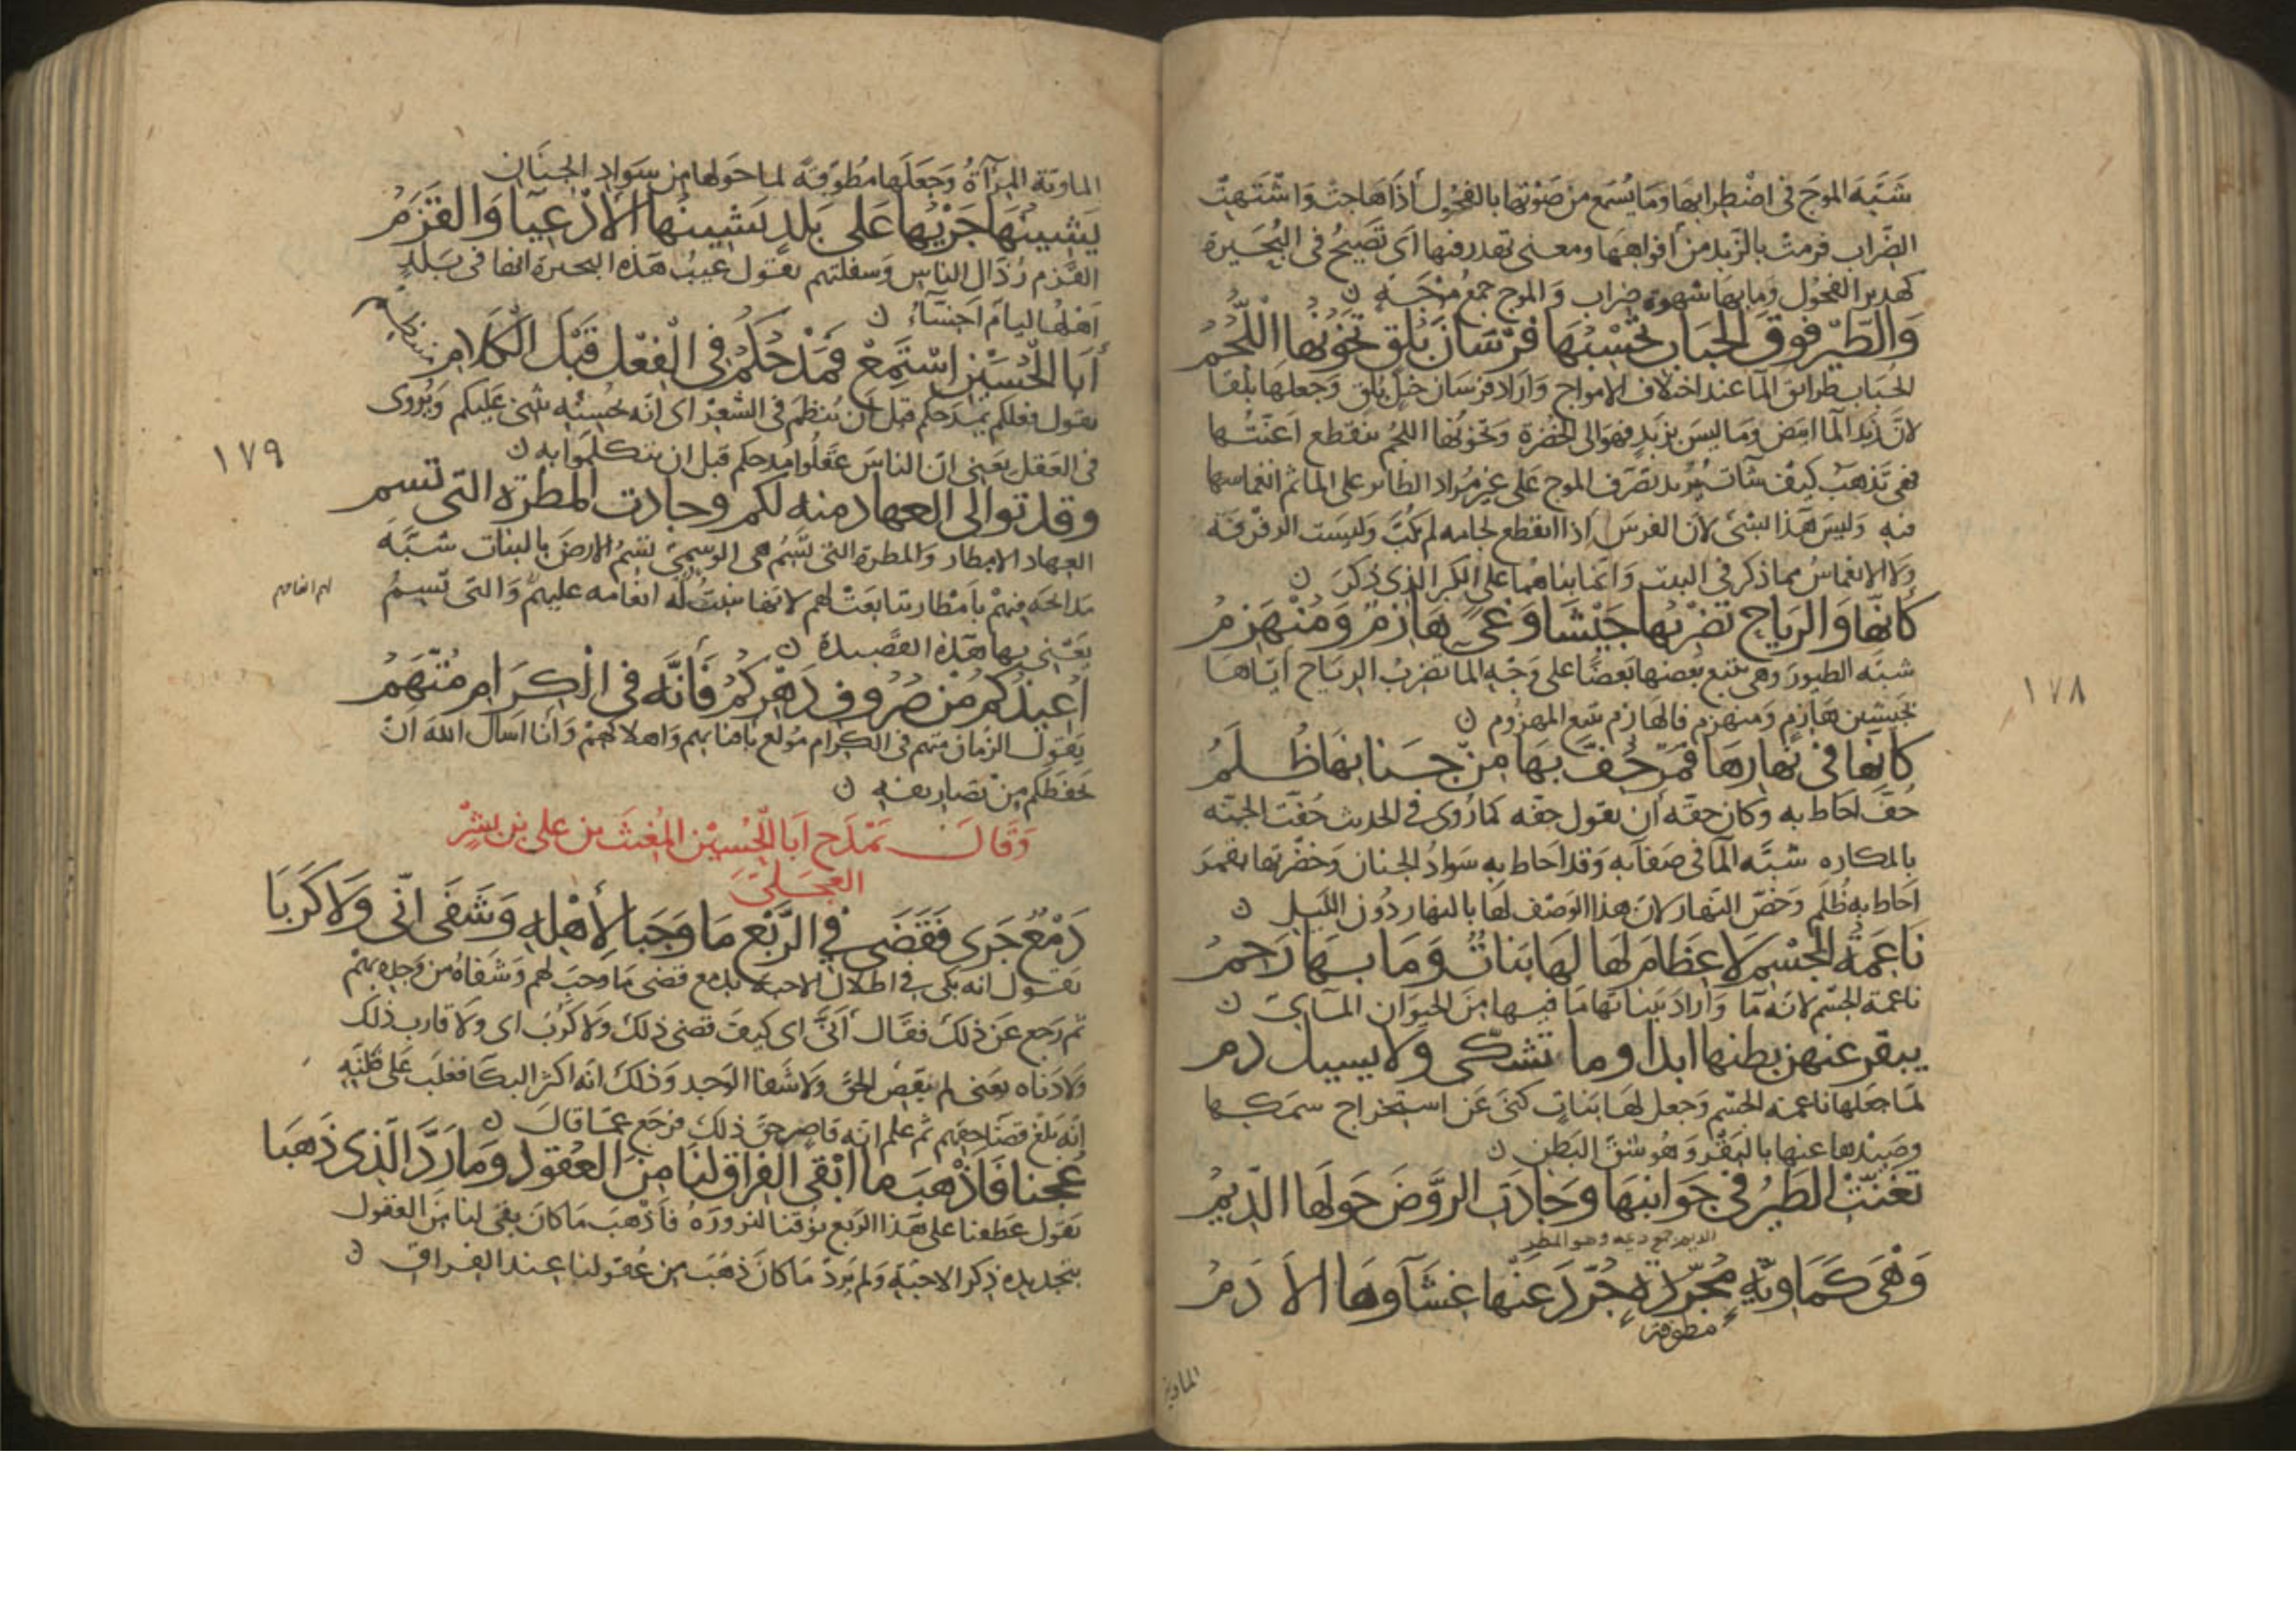 شَبَّهَ الموج في اضْطِرابِهَا وَمَا يُسْمَع مِنْ صَوْتِها بالفحُول أذَا هَاجتْ وَاشْتَهتْ
الضِّراب فرمتْ بالزَّبد من أفواهِهَا ومعنى تهدر فيها أى تَصيحُ في البُحَيرة
كهدير الفحُول وَمَا بهَا شهوة ضِراب وَالموج جمعُ مَوْجَةٍ ن
وَالطَّيْرُ فَوقَ الحَبَابِ تَحْسِبُهَا فُرْسَانَ بُلْقٍ تَخُونُها اللُّجُمُ
الحَبَاب طرائق الماء عند اختلاف الامواج وَأرَادَ فرسَان خيلٍ بُلْقٍ وَجعلهَا بلقًا
لانَّ زبدَ الماء ابيَض وَمَا ليسَ بزَبَدٍ فهوَ الى الخُضْرة وَتخونُها اللجُمُ تنقَطع أعنَّتُها
فهى تذهَبُ كيف شآت يُريد تصَرّف الموج عَلى غير مُراد الطائر على الماء ثم انغماسها
فيهِ وَليسَ هَذا بشىء لانّ الفرسَ إذا انقطع لجامه لم يكبّ وَليسَت الرفرفَة
وَلا الانغماسُ مما ذكر في البيت وَانما بناهُمَا على الكر الذى ذكرَ ن
كَأنَّها وَالرِيَاحِ تَضْرِبُها جَيْشَا وَغًى هَازِمٌ وَمُنْهَزِمُ
شبَّه الطيورَ وهى تتبع بعضها بَعضًا على وَجْهِ الماء تضربُ الرِيَاح ايّاهَا
بجيشين هَازِمٍ وَمنهَزِم فالهازم يتبع المهزُوم ن
كأنَّها في نَهَارِهَا قمَرٌ حُفَّ بهَا مِنْ جِنانِهَا ظُلَمُ
حُفّ أحَاط به وكان حقّه أن يقول حفّه كما رُوى في الحديث حُفّت الجنّه
بالمكاره شبّه الماء في صَفائه وَقد احَاط بهِ سَوادُ الجنان وَخضْرتها بقمَر
أحَاط به ظُلَم وَخصّ النهَار لان هذا الوَصْف لهَا بالنهار دُون اللّيل ن
نَاعِمَةُ الجسْمِ لا عِظَامَ لَها لَهَا بَنَاتٌ وَمَا بِهَا رَحِمُ
ناعمة الجسْم لانه ماء وَأرادَ ببناتها مَا فيها مِنَ الحيَوَان المآئيّ ن
يبقر عنهن بطنها ابدا وما تشكّى ولا يسيل دم
لمّا جَعلها ناعمة الجسْم وَجعل لهَا بَناتٍ كنى عَن استخراج سمكها
وصَيْدها عنها بالبَقْر وَهُو شقّ البَطن ن
تَغَنَّتْ الطَيرُ في جَوَانبهَا وَجَادَتِ الرَّوَّضَ حَولَها الدّيمُ
الديم جمع ديمه وهو المطر
وَهْىَ كَمَاوِيّةٍ مُجَرّدَةٍ جُرّدَ عَنْها غِشَآوهَا الأدَمُ
مطوقة
الماوية
١٧٨
الماوِيّة المِرآةُ وَجَعَلَهَا مُطوّقةً لما حَوْلهَا مِن سَوَادِ الجنَان
يَشِينُهَا جَرْيُها عَلى بَلَدٍ تَشِينُها الأدْعِيَآ وَالقَزَمُ
القزم رُذال الناس وَسفلتهم يقول عَيبُ هَذه البحيرة انها في بَلَدٍ
أهْلُها ليام أخسّاءُ ن
أَبَا الْحُسَيْنِ اسْتَمِعْ فَمَدْحُكُمُ في الْفِعْلِ قَبْلَ الْكَلَامِ منتظم
يقول فعلكم يمدحكم قبل أن يُنظم في الشعْرِ اى انّه بحُسنِهِ يثنى عَليكم وَيُروى
في العَقل يعَنى انّ الناسَ عَقَلُوا مِدحكم قبل ان يتكلمُوا به ن
وقد توالى العهاد منه لكم وجادت المطرة التى تسم
العِهاد الامطار وَالمطرة التى تَسِمُ هى الوسمىّ يَسِمُ الارضَ بالنبات شبَّهَ
مَدائحَه فيهِمْ بأمْطار تتابعَتْ لهم لانها تنبتُ له انعَامه عليهم وَالتى تسِمُ
لهم انعامهم
يَعْنى بها هَذه القصِيدة ن
أُعِيذُكُمْ مِنْ صُرُوفِ دَهْرِكُمُ فَأنَّه في الْكِرَامِ مُتَّهَمُ
يَقول الزمان متهم في الكرام مُولع بافنائهم وَاهلاكهمْ وَأنَا أسأل الله انْ
يحفظكم مِنْ تصَاريفه ن
وَقَالَ يَمْدَح أبَا الحُسَيْن المُغيث بن على بن بشرٍ
العجلىّ
دَمْعٌ جَرى فَقَضَى في الرَّبْعِ مَا وَجَبا لِأهْلِهِ وَشَفَى أنّى وَلا كَرَبَا
يَقول انه بكى في اطلال الاحبة بدمع قضى مَا وَجَب لهم وَشفَاهُ من وَجدِه بهِمْ
ثم رَجع عَن ذلكَ فقَال أنَّى اى كيفَ قضى ذلكَ وَلا كرَبَ اى وَلا قارب ذلك
وَلا دَناه يعَنى لم يَقضِ الحقَّ وَلا شفا الوَجد وَذلكَ انّه اكثر البكاء فغلَب عَلى ظنّهِ
إنّه بَلَغ قضَاء حقّهم ثم علم انه قاصِر حقّ ذلكَ فرَجَع عمّا قالَ ن
عُجنا فَأذْهَبَ ما ابْقى الفِراق لنَا مِنَ العُقولِ وَمَا رَدَّ الّذى ذَهَبَا
يَقول عَطفنا على هَذا الرَبع نوقنا لنزورهُ فأذْهبَ مَا كانَ بقى لنا مِنَ العقول
بتجديده ذِكر الاحبّة وَلم يَردّ مَا كانَ ذهَبَ مِن عُقولنا عند الفراق ن
١٧٩